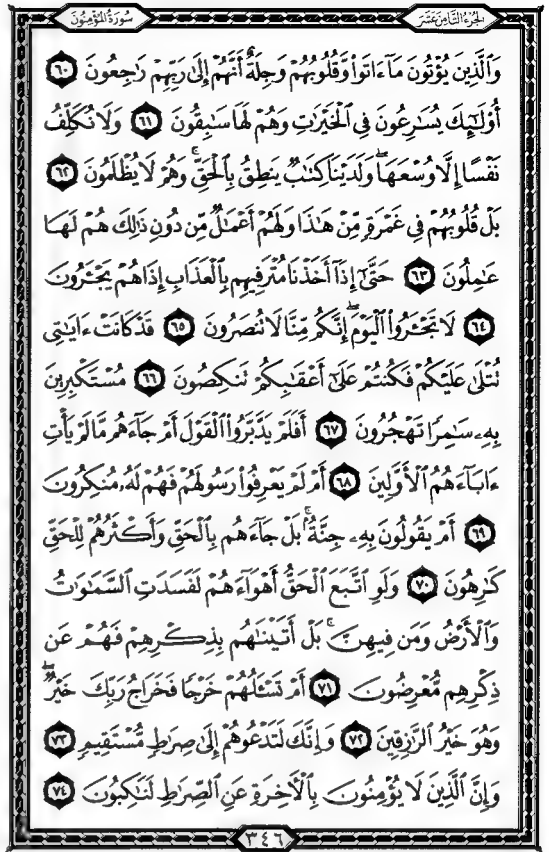 الجزء الثامن عشر
سورة المؤمنون
وَالَّذِينَ يُؤْتُونَ مَا ءَاتَوا۟ وَّقُلُوبُهُمْ وَجِلَةٌ أَنَّهُمْ إِلَىٰ رَبِّهِمْ رَٰجِعُونَ ٦٠
أُو۟لَٰٓئِكَ يُسَٰرِعُونَ فِي ٱلْخَيْرَٰتِ وَهُمْ لَهَا سَٰبِقُونَ ٦١ وَلَا نُكَلِّفُ
نَفْسًا إِلَّا وُسْعَهَا ۖ وَلَدَيْنَا كِتَٰبٌ يَنطِقُ بِٱلْحَقِّ ۚ وَهُمْ لَا يُظْلَمُونَ ٦٢
بَلْ قُلُوبُهُمْ فِي غَمْرَةٍ مِّنْ هَٰذَا وَلَهُمْ أَعْمَٰلٌ مِّن دُونِ ذَٰلِكَ هُمْ لَهَا
عَٰمِلُونَ ٦٣ حَتَّىٰٓ إِذَآ أَخَذْنَا مُتْرَفِيهِم بِٱلْعَذَابِ إِذَا هُمْ يَجْـَٔرُونَ
٦٤ لَا تَجْـَٔرُوا۟ ٱلْيَوْمَ ۖ إِنَّكُم مِّنَّا لَا تُنصَرُونَ ٦٥ قَدْ كَانَتْ ءَايَٰتِي
تُتْلَىٰ عَلَيْكُمْ فَكُنتُمْ عَلَىٰٓ أَعْقَٰبِكُمْ تَنكِصُونَ ٦٦ مُسْتَكْبِرِينَ
بِهِۦ سَٰمِرًا تَهْجُرُونَ ٦٧ أَفَلَمْ يَدَّبَّرُوا۟ ٱلْقَوْلَ أَمْ جَآءَهُم مَّا لَمْ يَأْتِ
ءَابَآءَهُمُ ٱلْأَوَّلِينَ ٦٨ أَمْ لَمْ يَعْرِفُوا۟ رَسُولَهُمْ فَهُمْ لَهُۥ مُنكِرُونَ
٦٩ أَمْ يَقُولُونَ بِهِۦ جِنَّةٌۢ ۚ بَلْ جَآءَهُم بِٱلْحَقِّ وَأَكْثَرُهُمْ لِلْحَقِّ
كَٰرِهُونَ ٧٠ وَلَوِ ٱتَّبَعَ ٱلْحَقُّ أَهْوَآءَهُمْ لَفَسَدَتِ ٱلسَّمَٰوَٰتُ
وَٱلْأَرْضُ وَمَن فِيهِنَّ ۚ بَلْ أَتَيْنَٰهُم بِذِكْرِهِمْ فَهُمْ عَن
ذِكْرِهِم مُّعْرِضُونَ ٧١ أَمْ تَسْـَٔلُهُمْ خَرْجًا فَخَرَاجُ رَبِّكَ خَيْرٌ ۖ
وَهُوَ خَيْرُ ٱلرَّٰزِقِينَ ٧٢ وَإِنَّكَ لَتَدْعُوهُمْ إِلَىٰ صِرَٰطٍ مُّسْتَقِيمٍ ٧٣
وَإِنَّ ٱلَّذِينَ لَا يُؤْمِنُونَ بِٱلْأَخِرَةِ عَنِ ٱلصِّرَٰطِ لَنَٰكِبُونَ ٧٤
٣٤٦